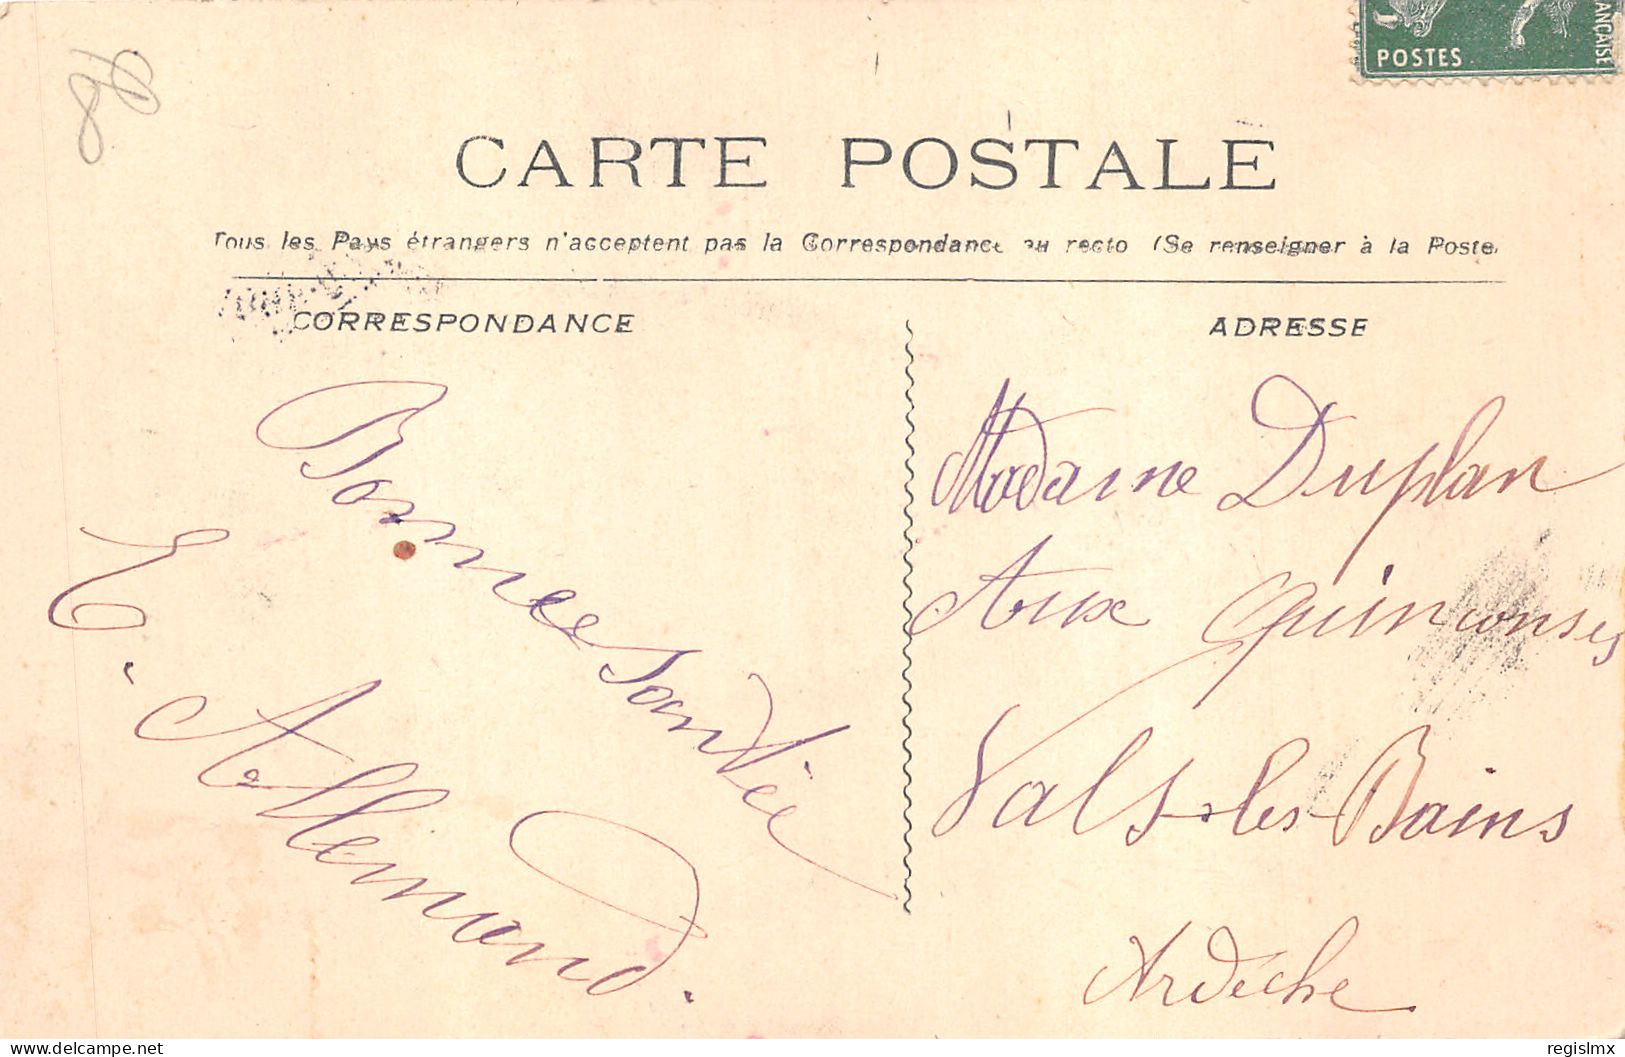 78
POSTES
ANÇAISE
CARTE POSTALE
Tous les Pays étrangers n'acceptent pas la Correspondance au recto (Se renseigner à la Poste)
CORRESPONDANCE
Bonne Santée
E. Allemand.
ADRESSE
Madame Duplan
Aux Quinconses
Vals-les-Bains
Ardèche
delcampe.net
regislmx